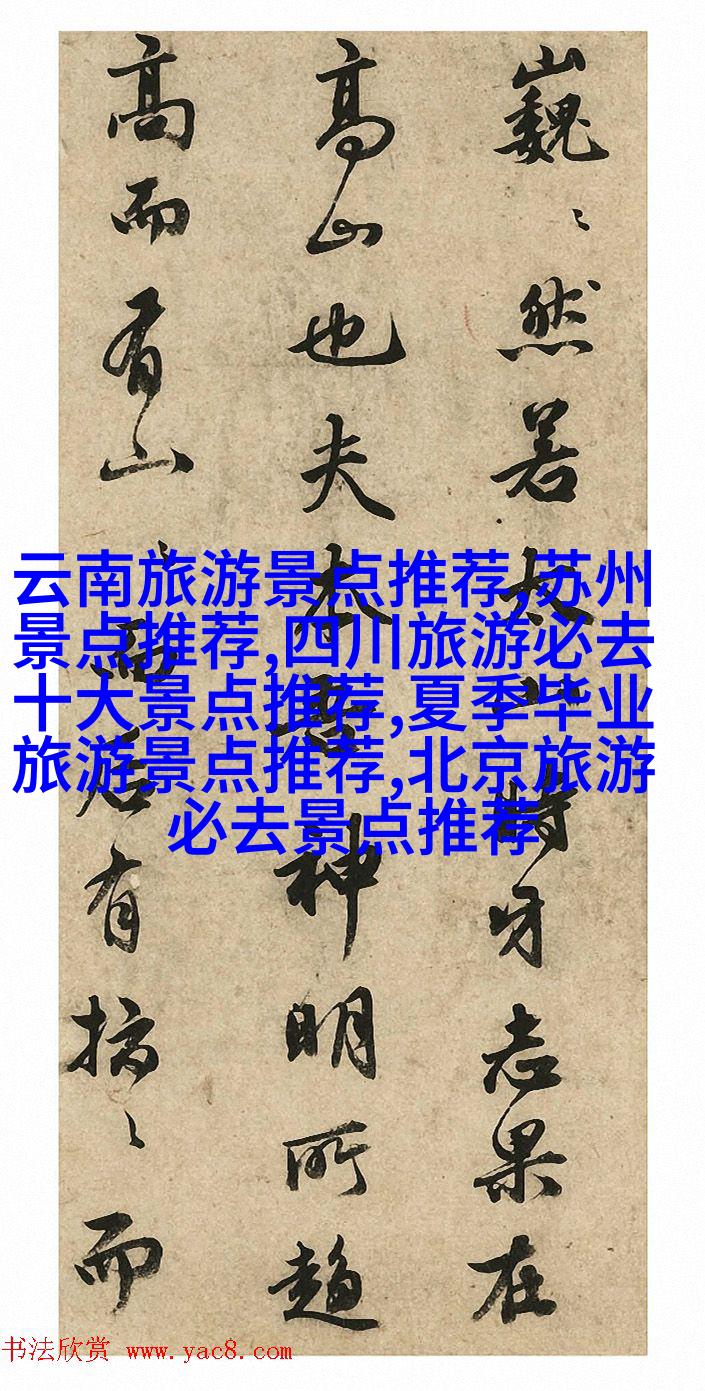 巍〻然若太山時牙志果在
高山也夫本吾神明所趨
高而有山〻而后有搞〻而
云南旅游景点推荐,苏州
景点推荐,四川旅游必去
十大景点推荐,夏季毕业
旅游景点推荐,北京旅游
必去景点推荐
书法欣赏 www.yac8.com